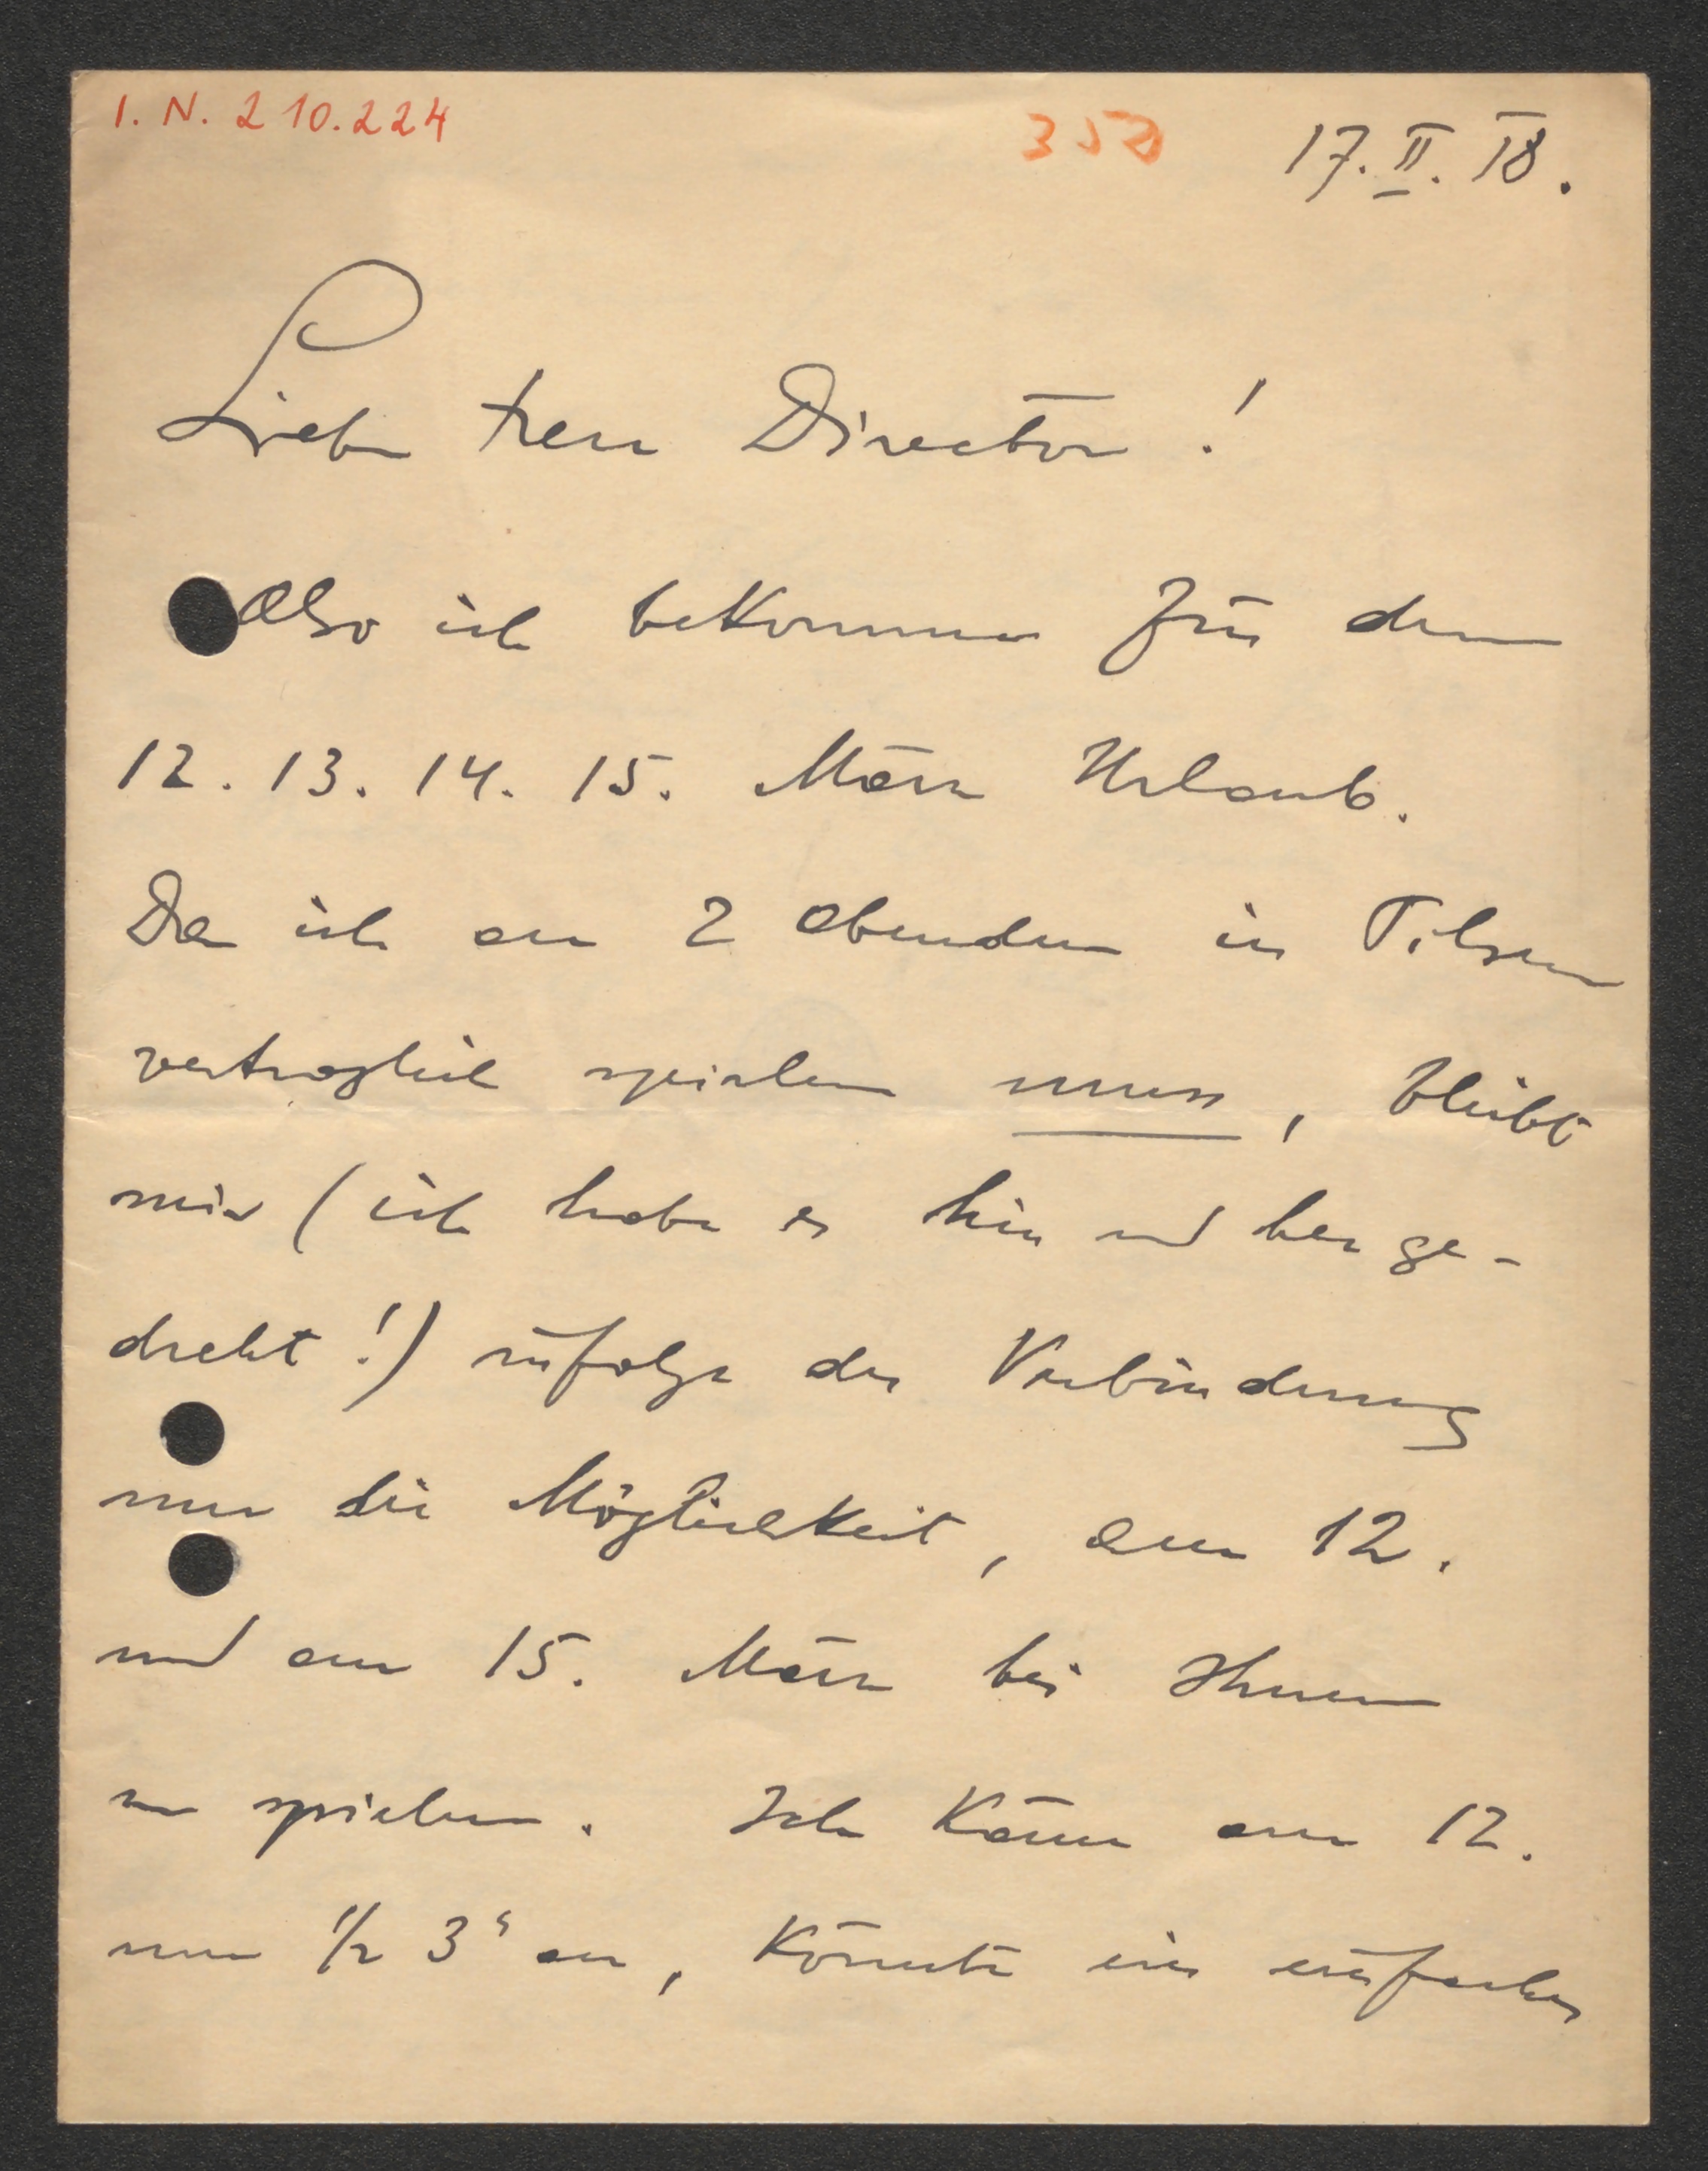 I. N. 210.224
353
17. II. 18.
Lieber Herr Director!
Also ich bekomme für den
12. 13. 14. 15. März Urlaub.
Da ich an 2 Abenden in Pilsen
vertraglich spielen muss, bleibt
mir (ich habe es hin und her ge-
dreht!) zufolge der Verbindung
nur die Möglichkeit, am 12.
und am 15. März bei Ihnen
zu spielen. Ich käme am 12.
um 1/2 3h an, könnte ein einfaches